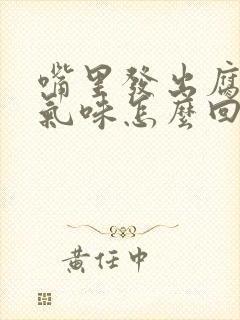 嘴里發出腐
氣味怎麼回
黃任中